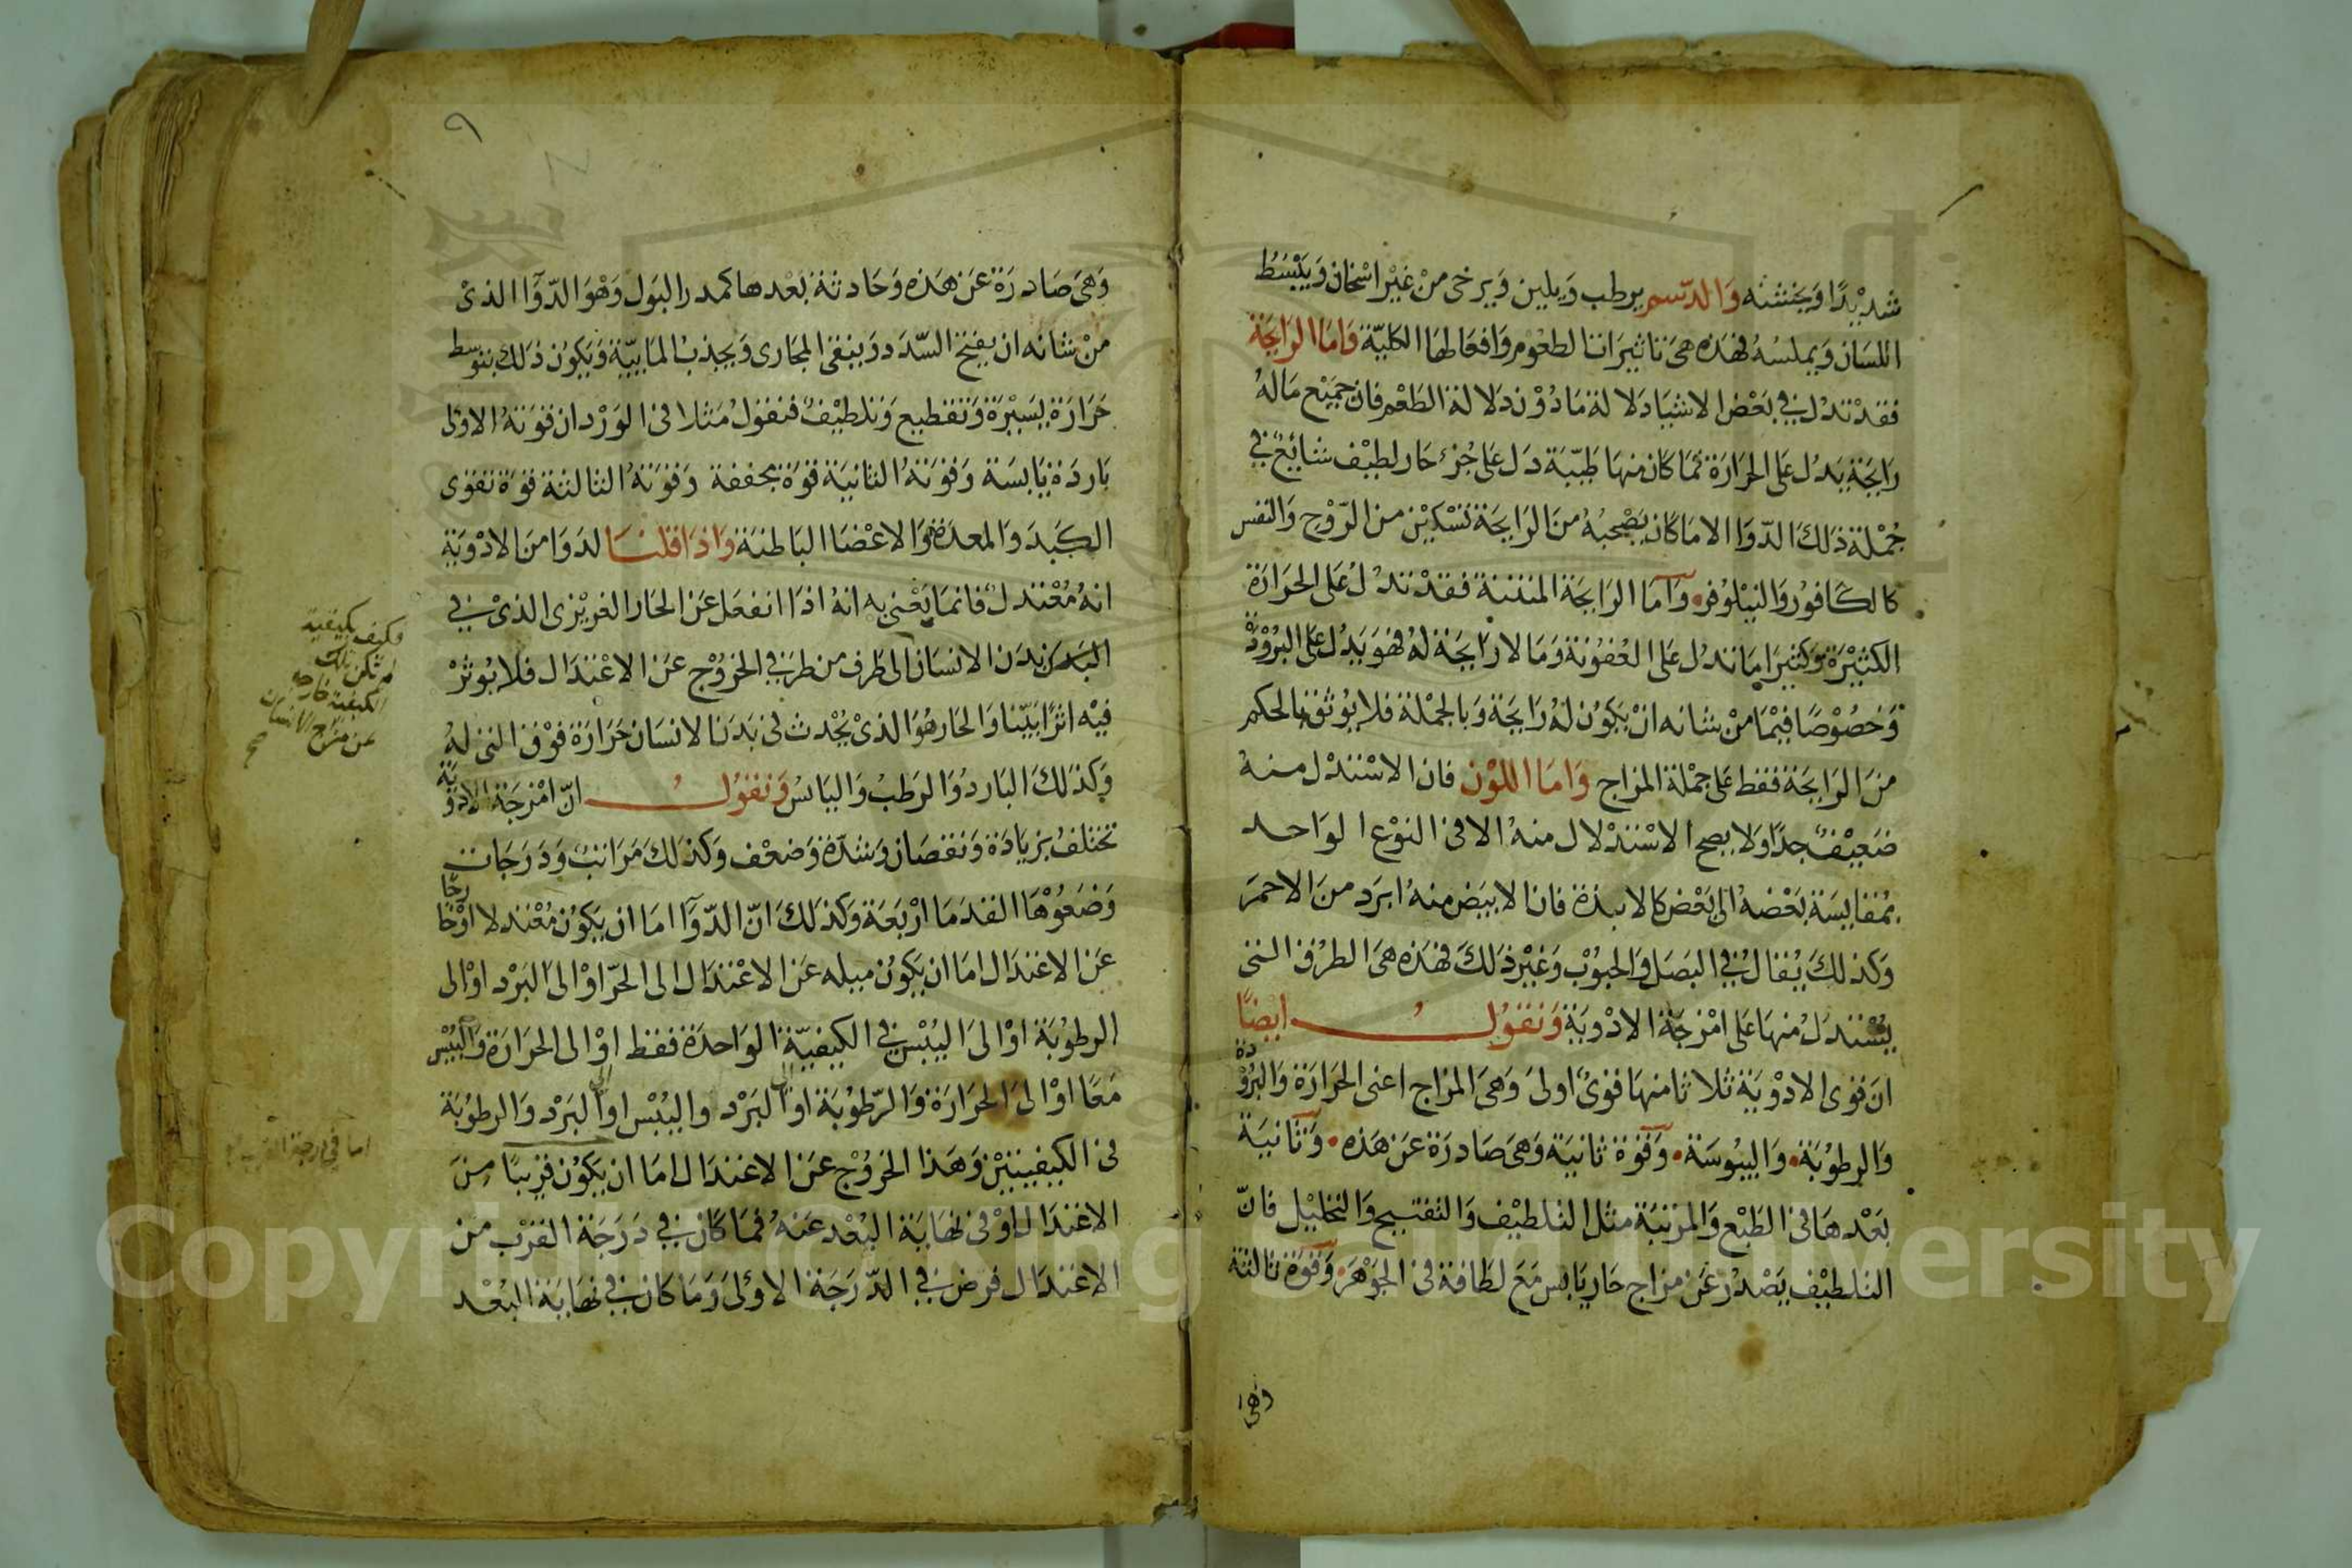 شديدا ويخشنه والدسم يرطب ويلين ويرخى من غير اسخان ويبسط
اللسان ويملسه فهذه هى تاثيرات الطعوم وافعالها الكلية واما الرايحة
فقد تدل في بعض الاشيا دلالة ما دون دلالة الطعم فان جميع ماله
رايحة يدل على الحرارة فما كان منها طيبة دل على جزء حار لطيف شائع في
جملة ذلك الدوا الا ما كان يصحبه من الرايحة تسكين من الروح والنفس
كالكافور والنيلوفر واما الرايحة المنتنة فقد تدل على الحرارة
الكثيرة وكثيرا ما تدل على العفونة وما لا رايحة له فهو يدل على البرودة
وخصوصا فيما من شانه ان يكون له رايحة وبالجملة فلا يوثق بالحكم
من الرايحة فقط على جملة المزاج واما اللون فان الاستدل منه
ضعيف جدا ولا يصح الاستدلال منه الا فى النوع الواحد
بمقايسة بعضه الى بعض كالانبذة فان الابيض منه ابرد من الاحمر
وكذلك يقال في البصل والحبوب وغير ذلك فهذه هى الطرق التى
يستدل منها على امزجة الادوية ونقول ايضا
ان قوى الادوية ثلاثا منها قوى اولى وهى المزاج اعنى الحرارة والبرودة
والرطوبة واليبوسة وقوة ثانية وهى صادرة عن هذه وثانية
بعدها فى الطبع والمرتبة مثل التلطيف والتفتيح والتحليل فان
التلطيف يصدر عن مزاج حار يابس مع لطافة فى الجوهر وقوة ثالثة
وهى
٩
وهى صادرة عن هذه وحادثة بعدها كمدر البول وهو الدوآ الذى
من شانه ان يفتح السدد وينقى المجارى ويجذب المايية ويكون ذلك بتوسط
حرارة يسيرة وتقطيع وتلطيف فنقول مثلا فى الورد ان قوته الاولى
باردة يابسة وقوته الثانية قوة مجففة وقوته الثالثة قوة تقوى
الكبد والمعدة والاعضا الباطنة واذا قلنا لدوا من الادوية
انه معتدل فانما يعنى به انه اذا انفعل عن الحار الغريزى الذى في
البدن بدن الانسان الى طرف من طرفي الخروج عن الاعتدال فلا يوثر
فيه اثرا بينا والحار هو الذى يحدث فى بدن الانسان حرارة فوق التى له
وكذلك البارد والرطب واليابس ونقول ان امزجة الادوية
تختلف بزيادة ونقصان وشدة وضعف وكذلك مراتب ودرجات
وضعوها القدما اربعة وكذلك ان الدوآ اما ان يكون معتدلا او خارجا
عن الاعتدال اما ان يكون ميله عن الاعتدال الى الحر او الى البرد او الى
الرطوبة او الى اليبس في الكيفية الواحدة فقط او الى الحرارة واليبس
معا او الى الحرارة والرطوبة او الى البرد واليبس او الى البرد والرطوبة
فى الكيفيتين وهذا الخروج عن الاعتدال اما ان يكون قريبا من
الاعتدال او فى نهاية البعد عنه فما كان في درجة القرب من
الاعتدال فرض في الدرجة الاولى وما كان في نهاية البعد
وكيف بكيفية
لم تكن تلك
الكيفية خارجه
عن مزاج الانسان
صح
اما في درجة القرب
Copyright © King Saud University